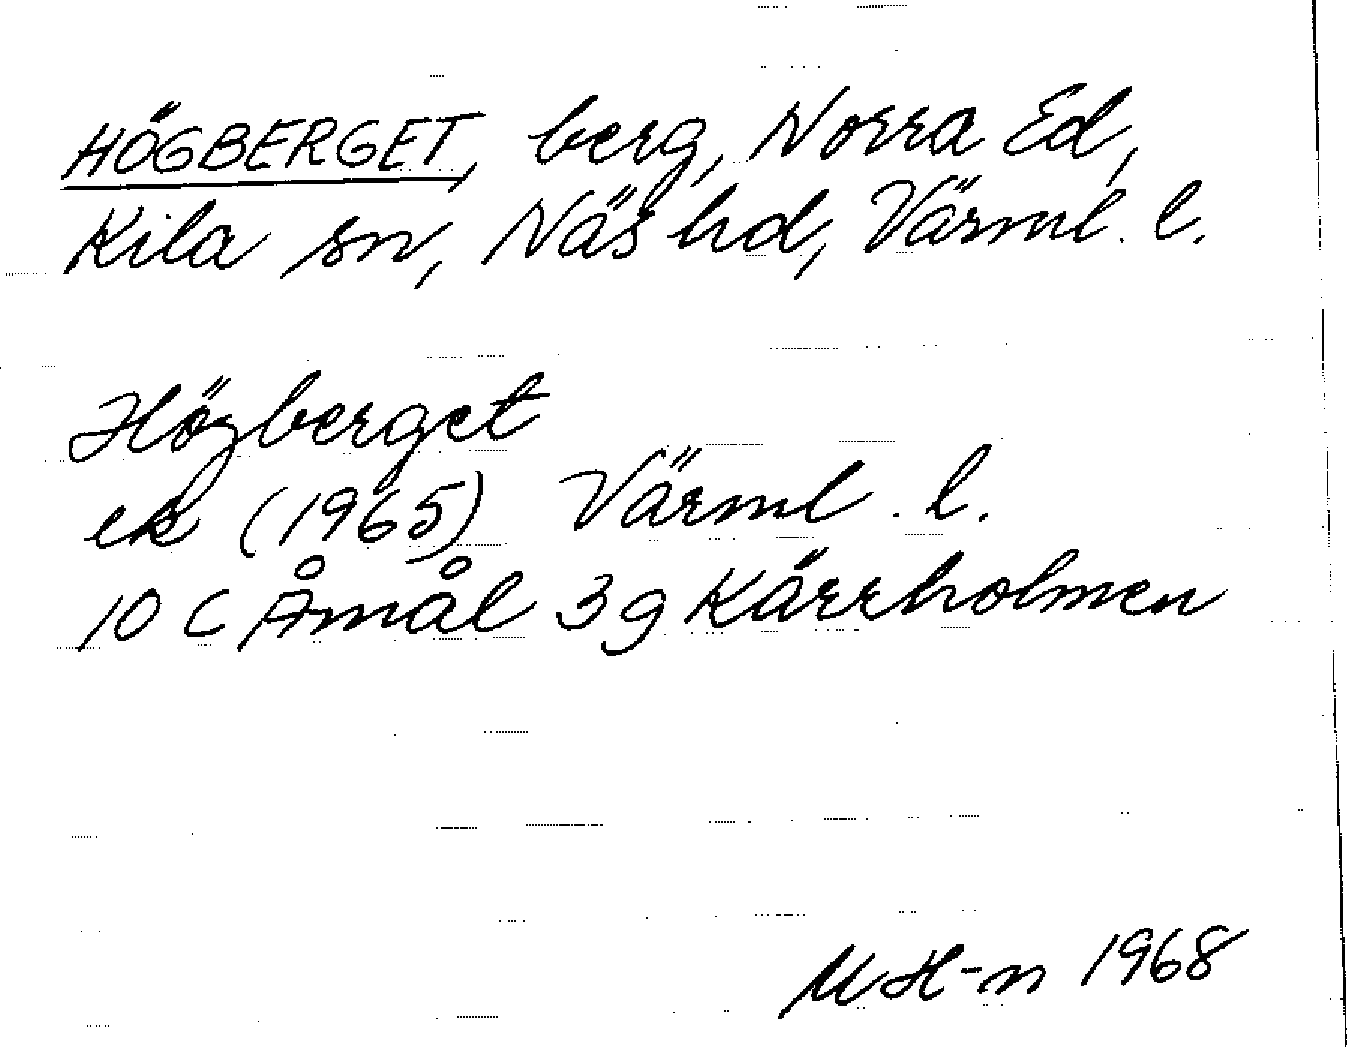 HÖGBERGET, berg, Norra Ed,
Kila sn, Näs hd, Värml. l.
Högberget
ek (1965) Värml. l.
10 C Åmål 3g Kärrholmen
M H-n 1968